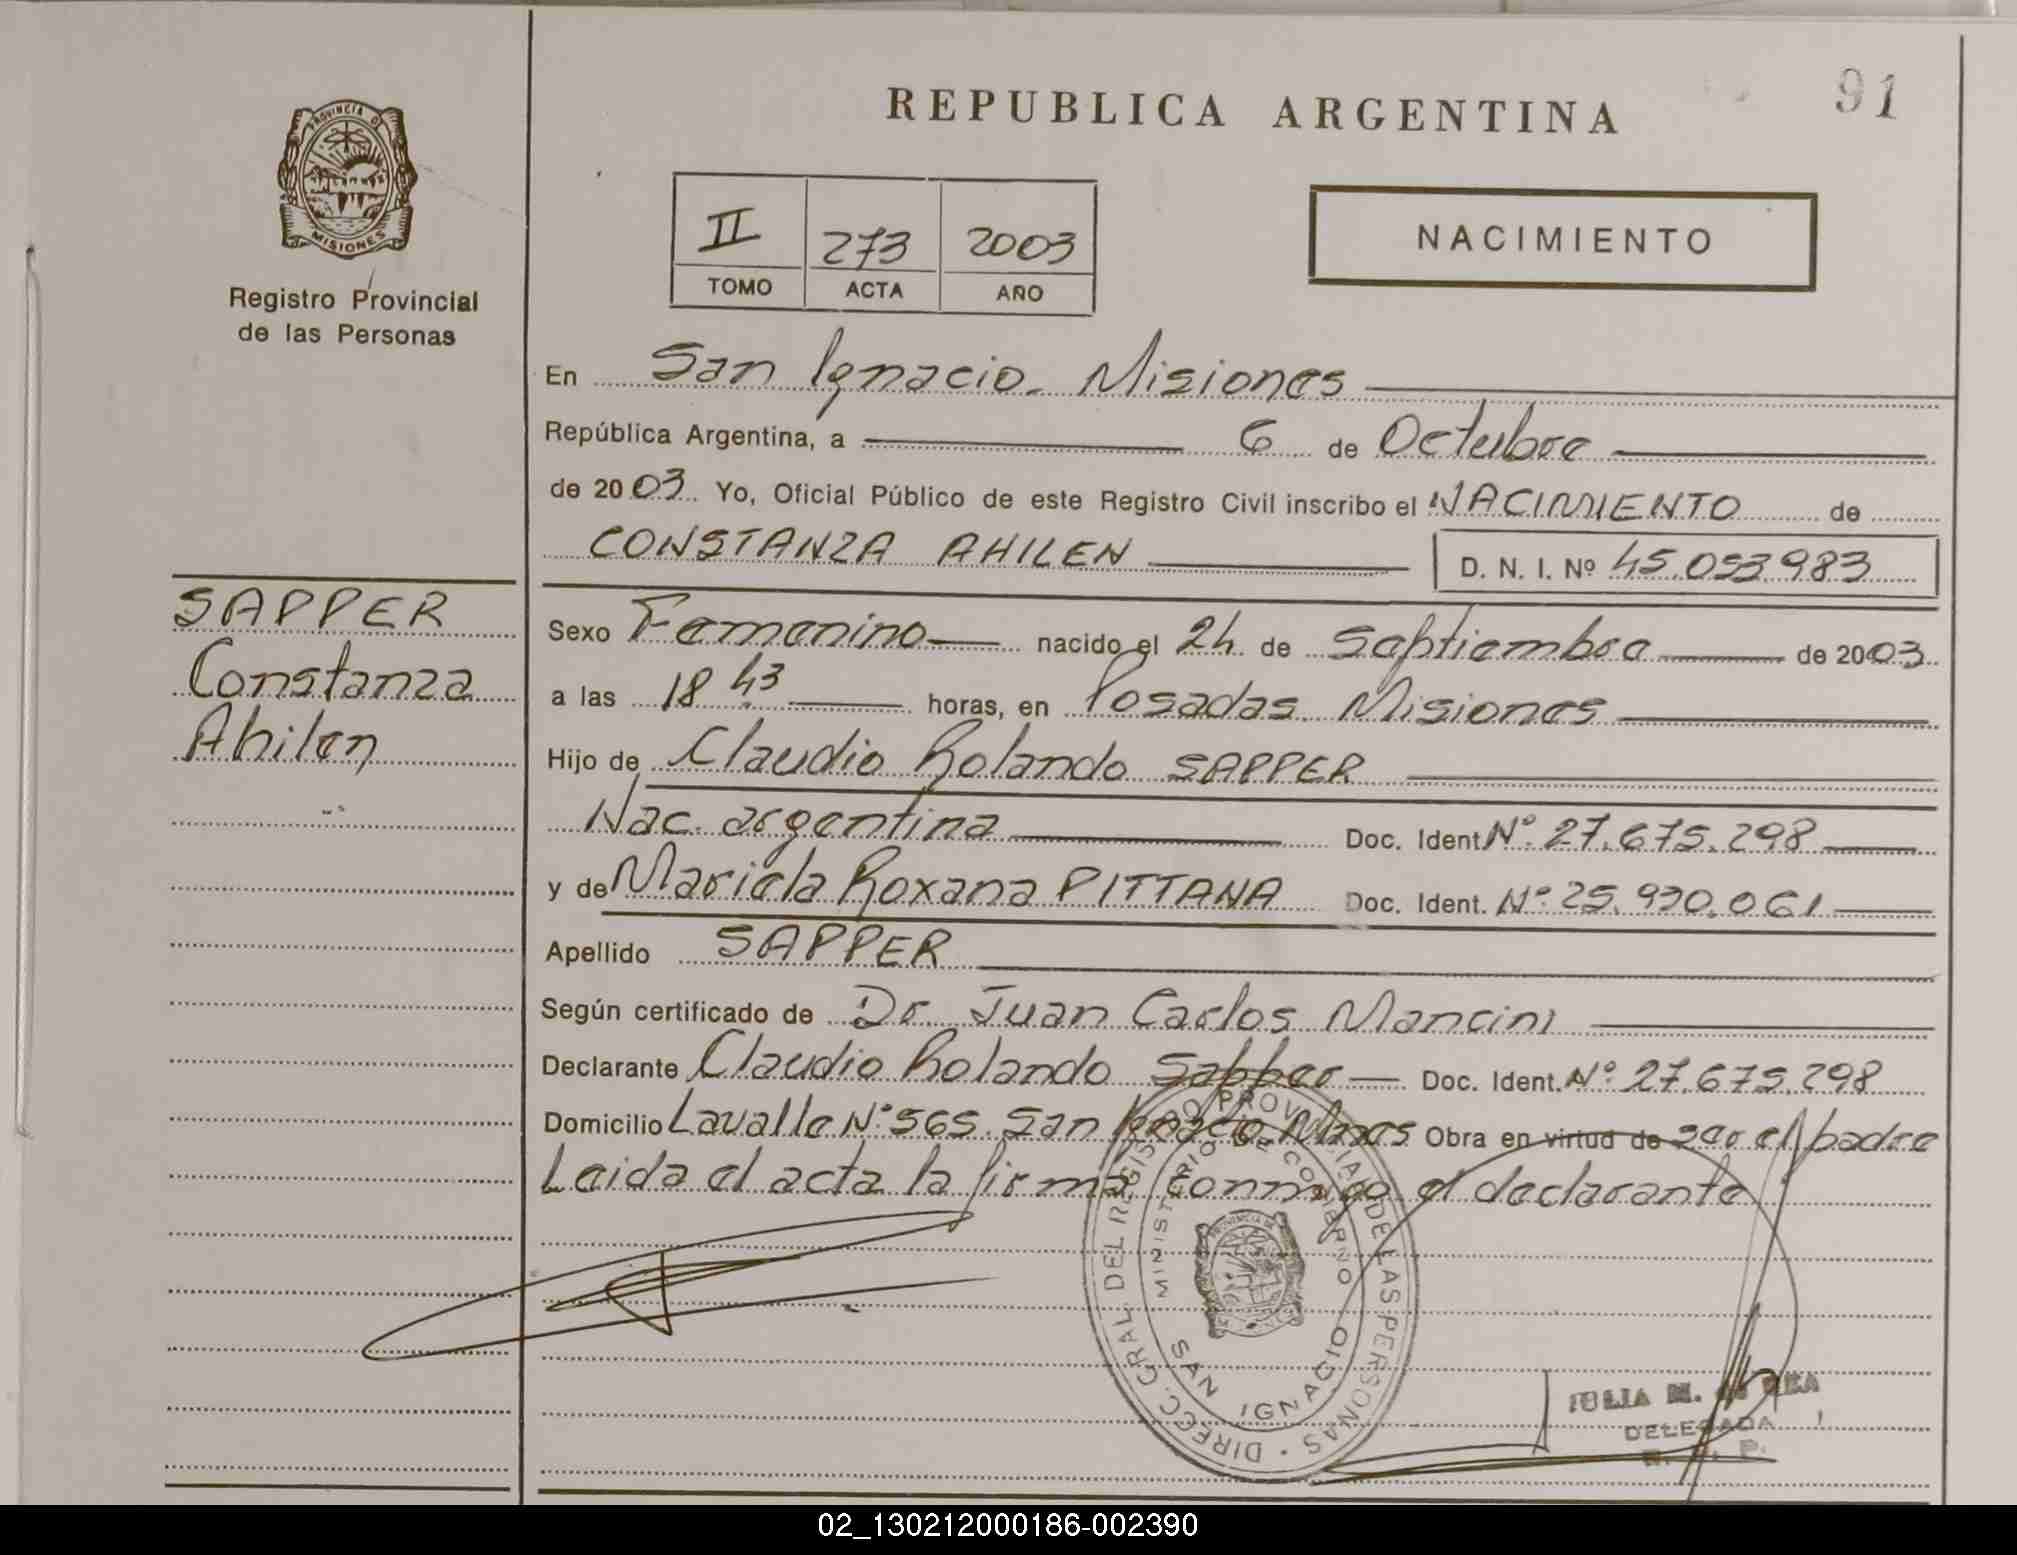 91
REPUBLICA ARGENTINA
PROVINCIA DE
MISIONES
Registro Provincial
de las Personas
II 273 2003
TOMO ACTA AÑO
NACIMIENTO
En San Ignacio. Misiones
República Argentina, a 6 de Octubre
de 2003 Yo, Oficial Público de este Registro Civil inscribo el NACIMIENTO de
CONSTANZA AHILEN D. N. I. Nº 45.053.983
SAPPER
Constanza
Ahilen
Sexo Femenino nacido el 24 de Septiembre de 2003
a las 18 43 horas, en Posadas. Misiones
Hijo de Claudio Rolando SAPPER
Nac. argentina Doc. Ident. Nº 27.675.298
y de Mariela Roxana PITTANA Doc. Ident. Nº 25.930.061
Apellido SAPPER
Según certificado de Dr. Juan Carlos Mancini
Declarante Claudio Rolando Sapper Doc. Ident. Nº 27.675.298
Domicilio Lavalle Nº 565. San Ignacio Mnes Obra en virtud de ser el padre
Leida el acta la firma conmigo el declarante
DIRECC. GRAL. DEL REGISTRO PROVINCIAL DE LAS PERSONAS
MINISTERIO DE GOBIERNO
SAN IGNACIO
JULIA M.
DELEGADA
R. P. P.
02_130212000186-002390